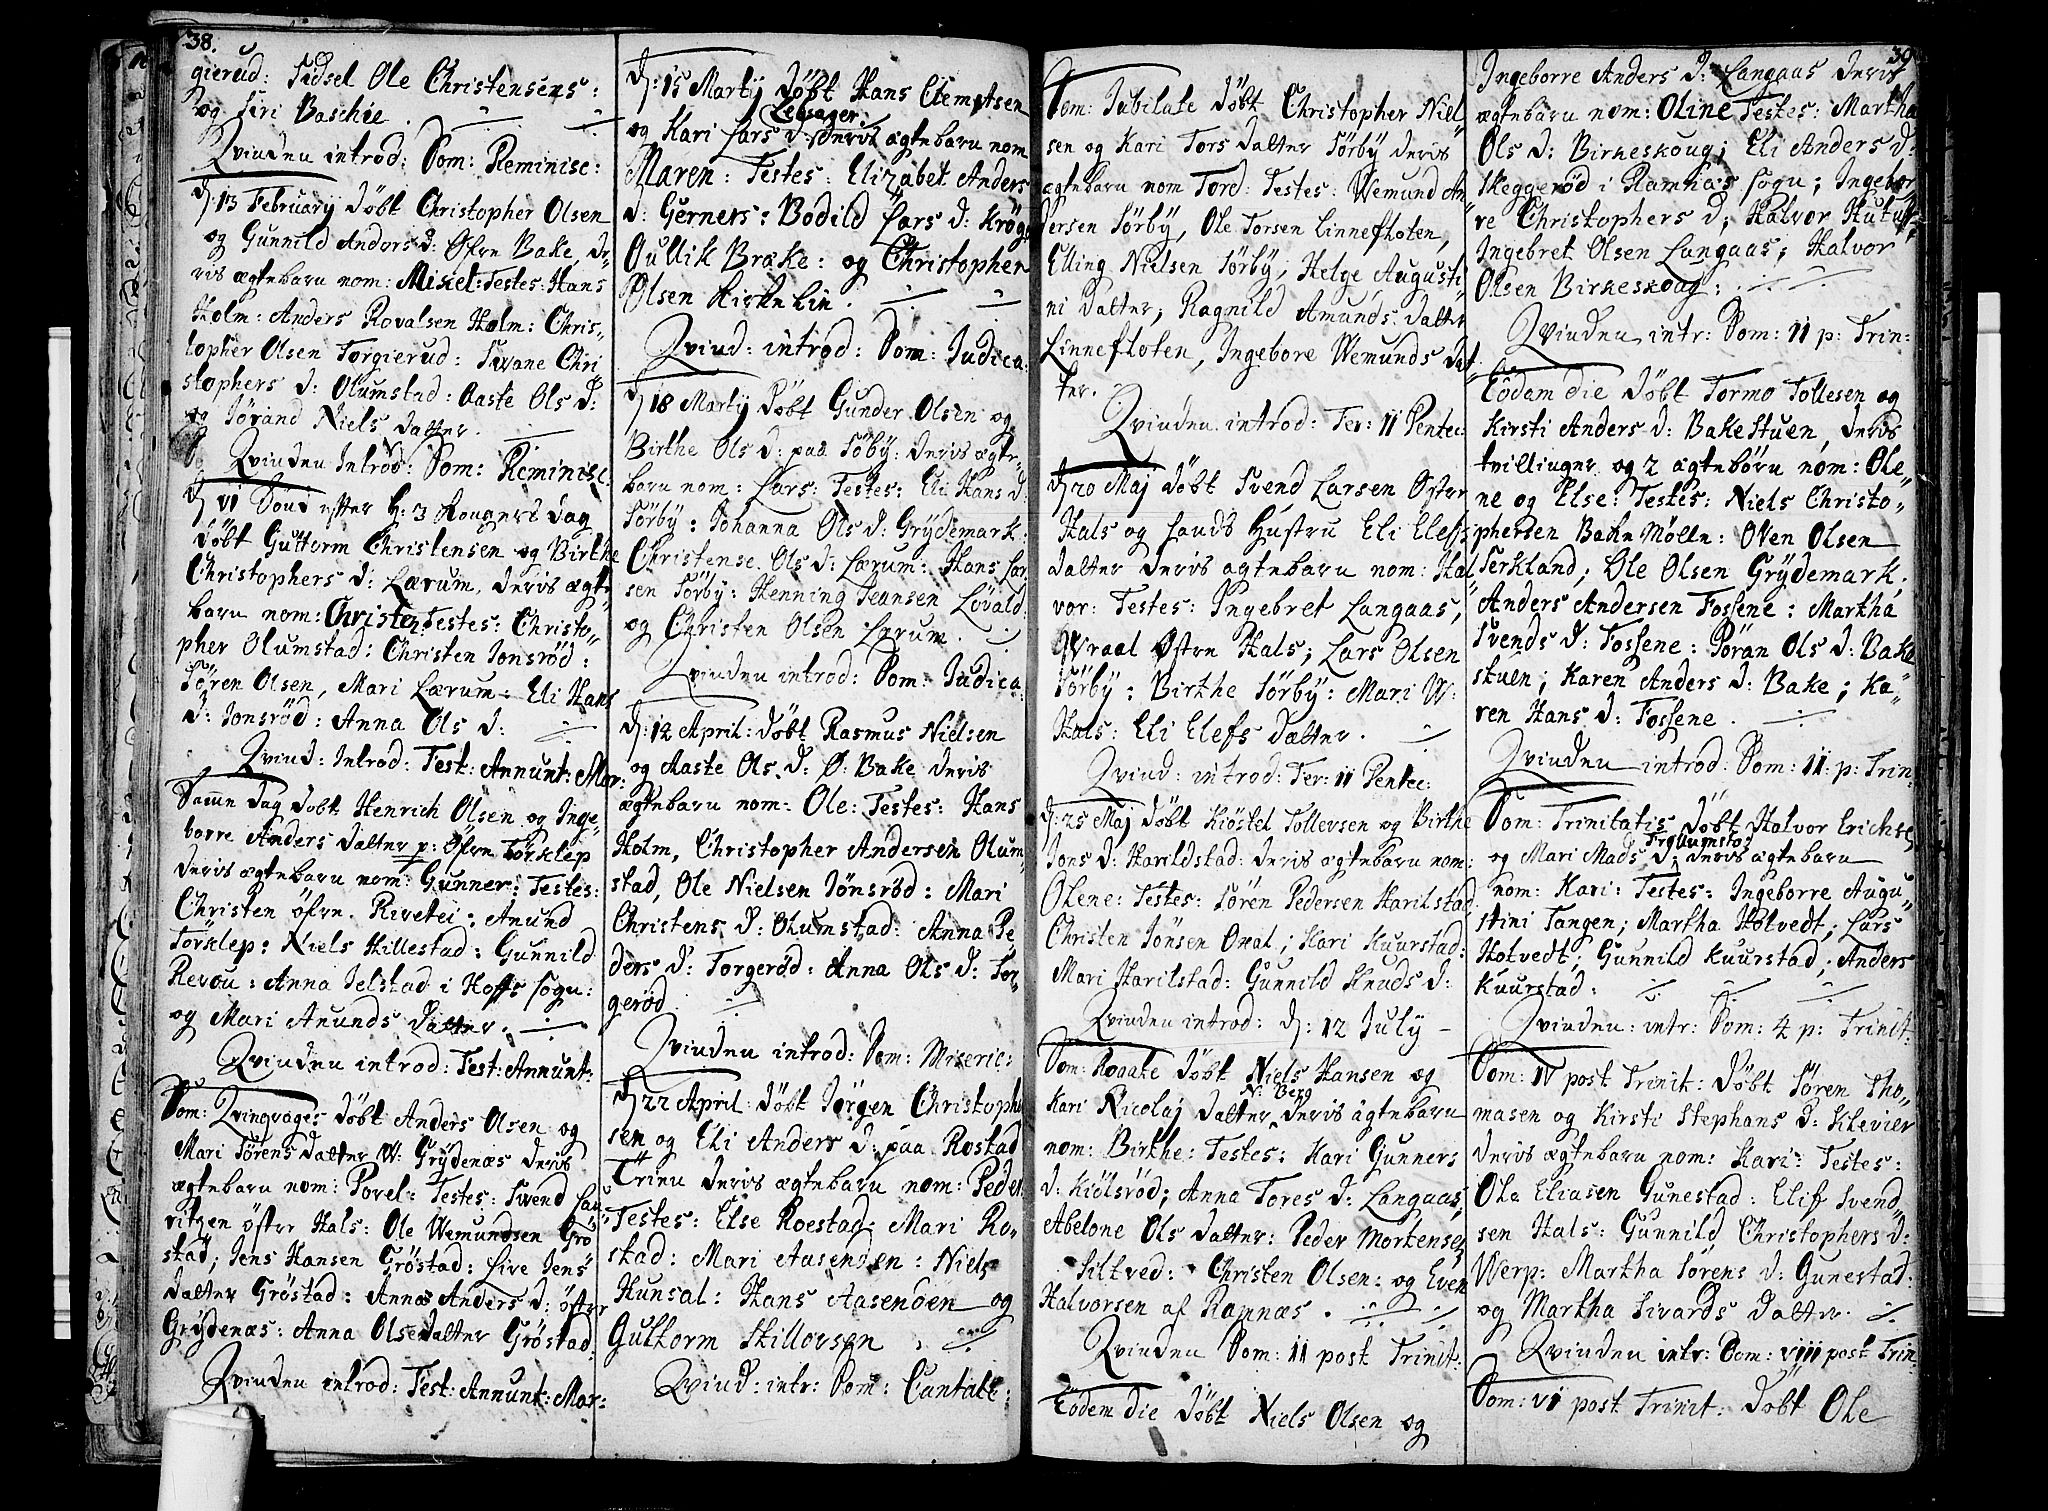 38.
gierud: Sidsel Ole Christensens:
og Siri Baschie.
Qvinden introd: Dom: Reminisc:
d: 13 February døbt Christopher Olsen
og Gunnild Anders d: Øfre Bake, de-
ris ægtebarn nom: Mikel: Testes: Hans
Holm: Anders Rovalsen Holm: Chris-
topher Olsen Torgierud: Svane Chri-
stophers d: Olumstad: Aaste Ols d:
og Jørand Niels datter.
Qvinden Introd: Dom: Reminisc.
d VI Sønd efter H: 3 Kongers dag
døbt Guttorm Christensen og Birthe
Christophers d: Lærum, deris ægte
barn nom: Christen Testes: Christo-
pher Olumstad: Christen Jonsrød:
Søren Olsen, Mari Lærum: Eli Hans
d: Jonsrød: Anna Ols d:
Qvind: Introd: Fest: Annunt: Mar:
Samme dag døbt Henrich Olsen og Inge-
borre Anders datter p: Øfre Torklep
deris ægtebarn nom: Gunner: Testes:
Christen øfre Rivetei: Anund
Torklep: Niels Hillestad: Gunnild
Revou: Anna Jelstad i Hoffs sogn:
og Mari Anunds datter.
Qvinden introd: Fest: Annunt:
Dom: Qvinqvages døbt Anders Olsen og
Mari Sørens datter W: Grydenæs deris
ægtebarn nom: Porel: Testes: Svend Lau-
ritzen øster Hals: Ole Wemundsen Grø
stad, Jens Hansen Grøstad: Live Jens
datter Grøstad: Anna Anders d: øster
Grydenæs: Anna Olsedatter Grøstad.
Qvinden introd: Fest: Annunt: Mar:
d: 15 Martij døbt Hans Clemetsen
Lebsager.
og Kari Lars d: deris ægtebarn nom
Maren: Testes: Elizabet Anders
d: Gerners: Bodild Lars d: Krøg
Oullik Brake: og Christopher
Olsen Kirke Lie.
Qvind: introd: Dom: Judica:
d 18 Martij døbt Gunder Olsen og
Birthe Ols d: paa Søby: deris ægte-
barn nom: Lars: Testes: Eli Hans d:
Sørby: Johanna Ols d: Grydemark:
Christense Ols d: Lærum: Hans Lar
sen Sørby: Henning Jeansen Løvald:
og Christen Olsen Lærum.
Qvinden introd: Dom: Judica:
d: 12 April: døbt Rasmus Nielsen
og Aaste Ols d: Ø: Bake deris
ægtebarn nom: Ole: Testes: Hans
Holm, Christopher Andersen Olum-
stad, Ole Nielsen Jønsrød: Mari
Christens d: Olumstad: Anna Pe
ders d: Torgerød: Anna Ols d: Tor-
gerød
Qvinden introd: Dom: Miseric:
d 22 April: døbt Jørgen Christoph
sen og Eli Anders d: paa Rostad
Trieu deris ægtebarn nom: Peder
Testes: Else Roestad: Mari Ro-
stad: Mari Aasenøen: Niels
Hunsal: Hans Aasenøen og
Guttorm Skillovsen.
Qvind: intr: Dom: Cantate:
Dom: Jubilate døbt Christopher Niel-
sen og Kari Tors datter Sørby deris
ægtebarn nom Tord: Testes: Wemund An
dersen Sørby, Ole Torsen Linnefloten,
Elling Nielsen Sørby, Helge Augusti-
ni datter, Ragnild Amunds datter
Linnefloten, Ingebore Wemunds dat
ter.
Qvinden introd: Fer: II Pentec:
d 20 Maj døbt Svend Larsen Øster
Hals og hands Hustru Eli Elefs
datter deris ægtebarn nom: Hal-
vor: Testes: Ingebret Langaas,
Ovraal Østre Hals; Lars Olsen
Sørby: Birthe Sørby: Mari W:
Hals: Eli Elefs datter.
Qvind: introd: Fer: II Pentec:
d: 25 Maj døbt Kiøstel Tollevsen og Birthe
Jons d: Harildstad: deris ægtebarn nom:
Olene: Testes: Søren Pedersen Harilstad
Christen Jønsen Oxal; Kari Kuurstad:
Mari Harilstad: Gunnild Knuds d:
Qvinden introd: d: 12 July –
Dom: Rogate døbt Niels Hansen og
N: Berg
Kari Nicolaj datter deris ægtebarn
nom: Birthe: Testes: Kari Gunners
d: Kiølsrød; Anna Tores d: Langaas,
Abelone Ols datter: Peder Mortensen
Siltved: Christen Olsen: og Even
Halvorsen af Ramnæs.
Qvinden Dom: II post Trinit:
Eodem die døbt Niels Olsen og
39
Ingeborre Anders d: Langaas deris
ægtebarn nom: Oline Testes: Martha
Ols d: Birkeskoug; Eli Anders d:
Skeggerød i Ramnas sogn; Ingebor
re Christophers d; Halvor Hutvet,
Ingebret Olsen Langaas; Halvor
Olsen Birkeskoug:
Qvinden intr: Dom: II p: Trin:
Eodam die døbt Tormo Tollesen og
Kirsti Anders d: Bakestuen, deris
tvillinger og 2 ægtebørn nom: Ole-
ne og Else: Testes: Niels Christo-
phersen Bake Mølle: Oven Olsen
Serkland; Ole Olsen Grydemark.
Anders Andersen Fossene: Martha
Svends d: Fossene: Pøran Ols d: Bake
stuen; Karen Anders d: Bake; Ka-
ren Hans d: Fossene.
Qvinden introd: Dom: II: p: Trin:
Dom: Trinitatis døbt Halvor Erichse
og Mari Mads d: deris ægtebarn
nom: Kari: Testes: Ingeborre Augu-
stini Tangen; Martha Holvedt; Lars
Hotvedt; Gunnild Kuurstad; Anders
Kuurstad:
Qvinden: intr: Dom: 4 p: Trinit:
Dom: IV post Trinit: døbt Søren Tho-
masen og Kirsti Stephans d: Klevier
deris ægtebarn nom: Kari: Testes:
Ola Eliasen Gunestad: Elif Svend
sen Hals: Gunnild Christophers d:
Werp: Martha Sørens d: Gunestad:
og Martha Sivards datter.
Qvinden intr: Dom: VIII post Trin
Dom: VI post Trinit: døbt Ole